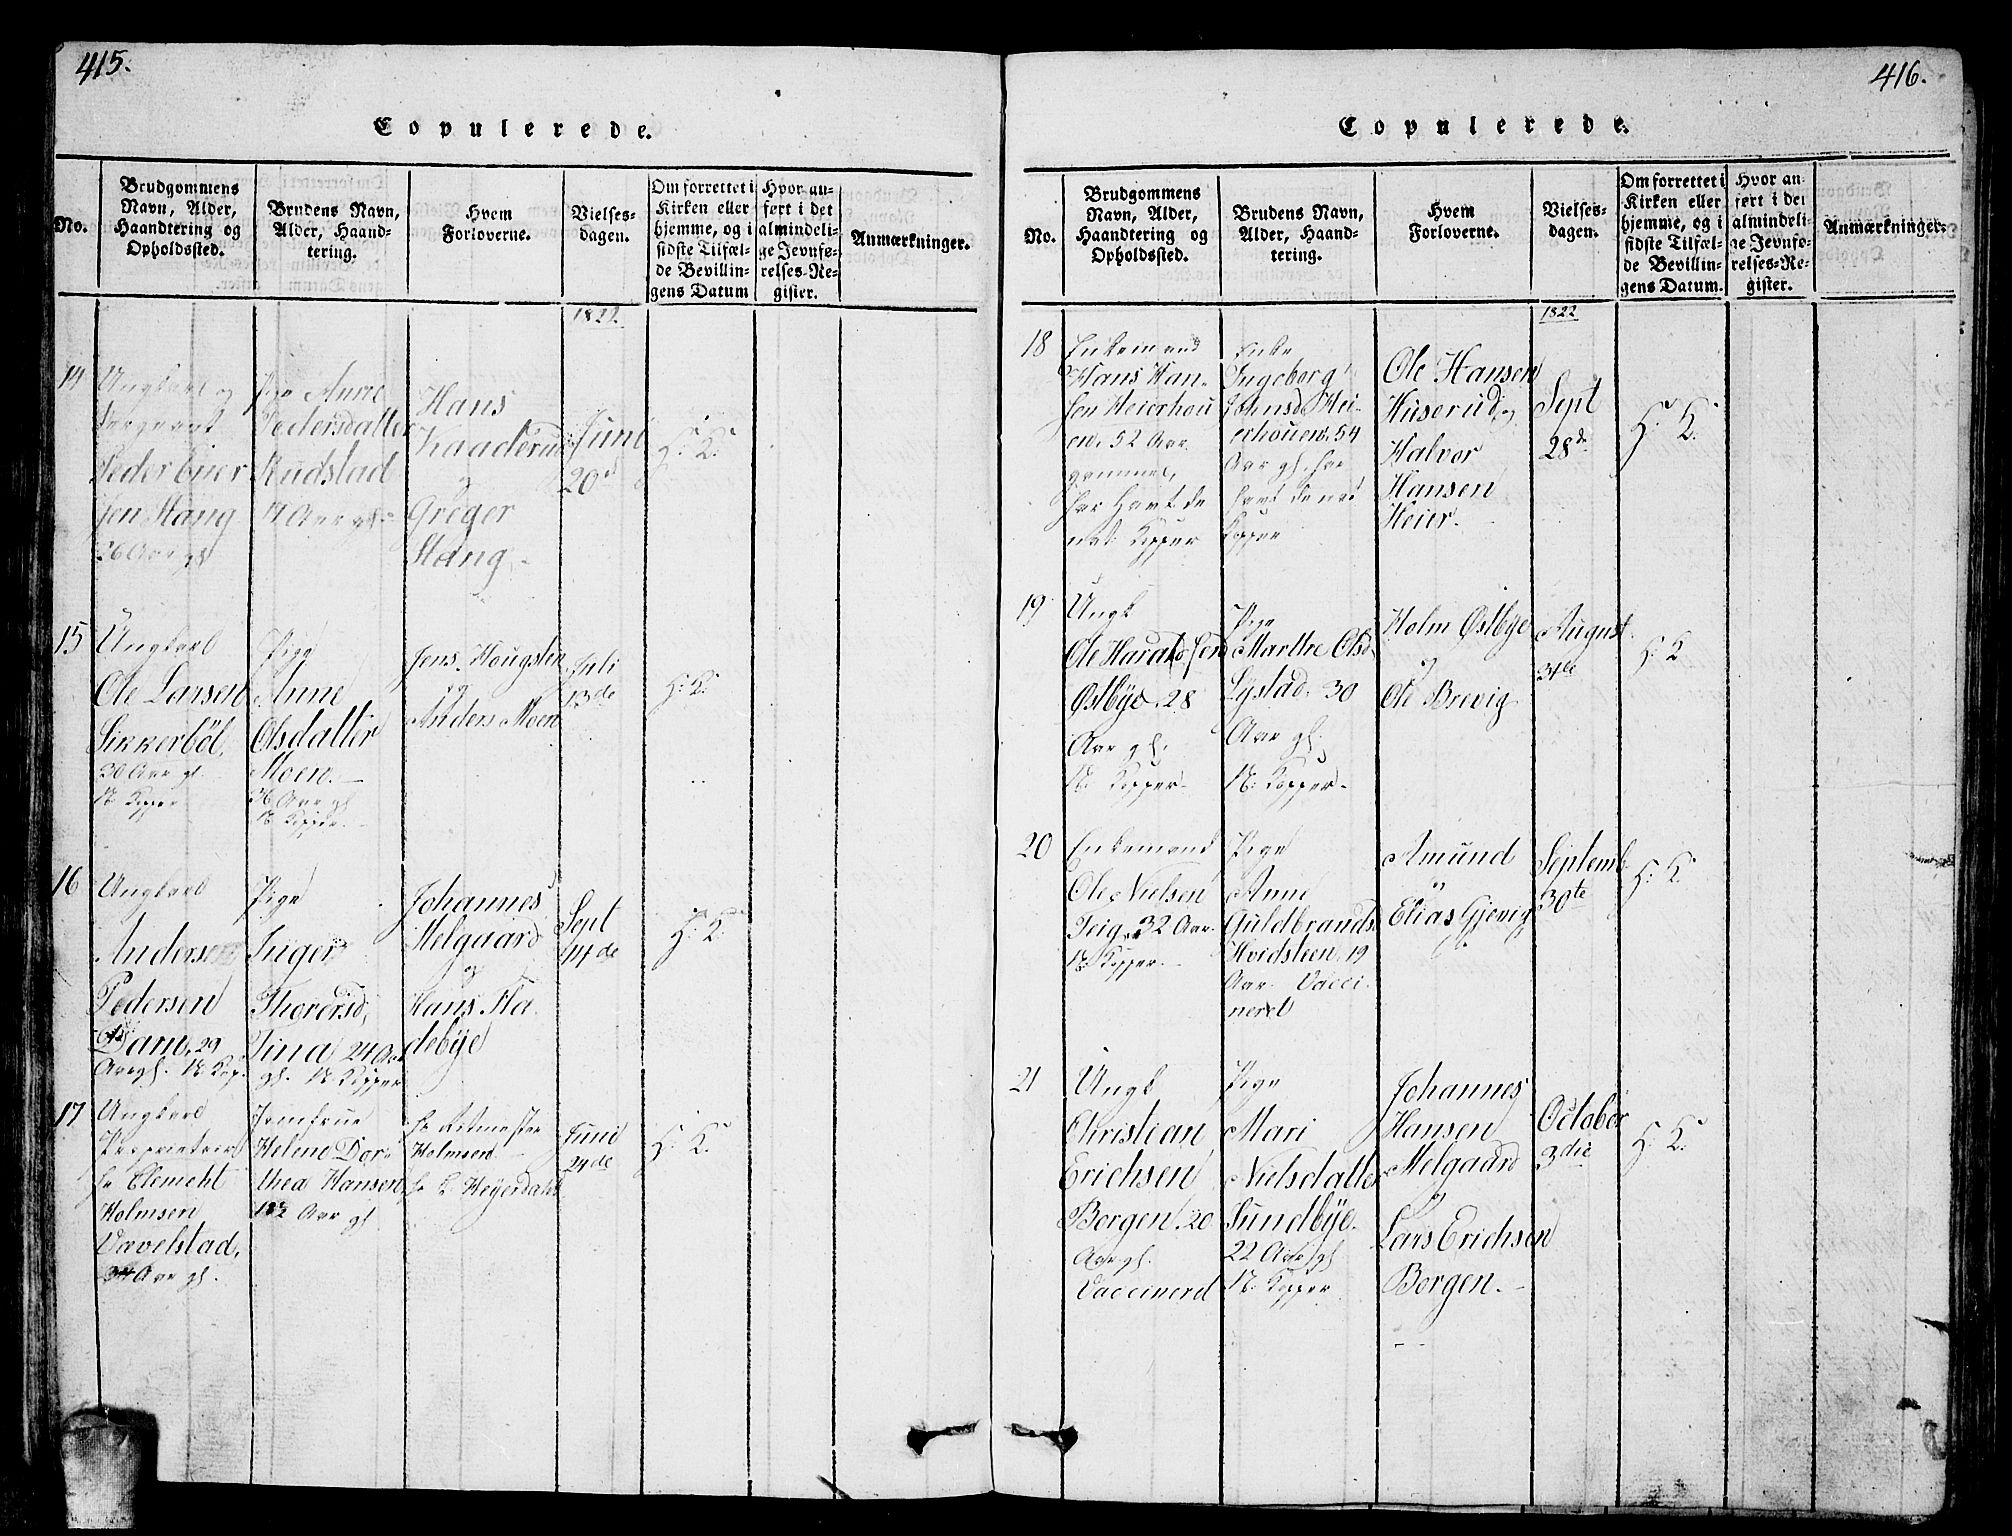 415.
Copulerede.
No.
Brudgommens
Navn, Alder,
Haandtering og
Opholdssted.
Brudens Navn,
Alder, Haand-
tering.
Hvem
Forloverne.
Vielses-
dagen.
Om forrettet i
Kirken eller
hjemme, og i
sidste Tilfæl-
de Bevillin-
gens Datum
Hvor an-
ført i det
almindeli-
ge Jevnfø-
relses-Re-
gister.
Anmærkninger.
1822.
14
Ungkarl og
Sergeant
Peder
sen Stang
26 Aar gl
Pige Anne
Pedersdatter
Rudstad
Aar gl.
Hans
Kaaderud
og
Greger
Stang.
Juni
20d
H: K:
15
Ungkarl
Ole Larsen
Sikkerböl,
30 Aar gl.
N. Kopper
Pige
Anne
Olsdatter
Moen.
36 Aar gl
N. Kopper.
Jens Hougsten
og
Anders Moen
Juli
13de
H: K:
16
Ungkarl
Anders
Pedersen
Dam, 29
Aar gl. N. Kop.
Pige
Inger
Thorersd,
Tina 24 Aar
gl. N. Kopper
Johannes
Melgaard
og
Hans Fla
debÿe
Sept
14de
H: K:
17
Ungkarl
Proprietær
Hr Clemeht
Holmsen
Vævelstad,
34 Aar gl.
Jomfrue
Helene Dor-
thea Hansen
Aar gl
Hr Ritmester
Holmsen
Hr Heÿerdahl
Juni
24de
H: K:
416.
Copulerede.
No.
Brudgommens
Navn, Alder,
Haandtering og
Opholdssted.
Brudens Navn,
Alder, Haand-
tering.
Hvem
Forloverne.
Vielses-
dagen.
Om forrettet i
Kirken eller
hjemme, og i
sidste Tilfæl-
de Bevillin-
gens Datum.
Hvor an-
ført i det
almindeli-
ge Jevnfø-
relses-Re-
gister.
Anmærkninger.
1822
18
Enkemand
Hans Han-
sen Heierhou
en. 52 Aar
gammel,
har havt de
nat: Kopper
Enke
Ingeborg
Johnsd. Hei-
erhouen. 54
Aar gl. har
havt de nat
Kopper
Ole Hansen
Huserud og
Halvor
Hansen
Heier.
Sept
28de
H: K:
19
Ungk
Ole Haraldsen
Östbÿe. 28
Aar gl.
N: Kopper.
Pige
Marthe Olsd.
Lÿstad. 30
Aar gl.
N: Kopper.
Holm Östbÿe
og
Ole Brevig
August
31de
H: K
20
Enkemand
Ole Nielsen
Teig. 32 Aar.
N: Kopper.
Pige
Anne
Guldbrands.
Hvidsteen. 19
Aar. Vacci
nered
Amund
og
Elias Gjevig
Septemb
30te
H: K.
21
Ungk
Christian
Erichsen
Borgen. 20
Aar gl.
Vaccinerd
Pige
Mari
Nielsdatter
Sundbÿe.
22 Aar gl
N: Kopper
Johannes
Hansen
Melgaard
og
Lars Erichsen
Borgen.
October
3die
H: K: